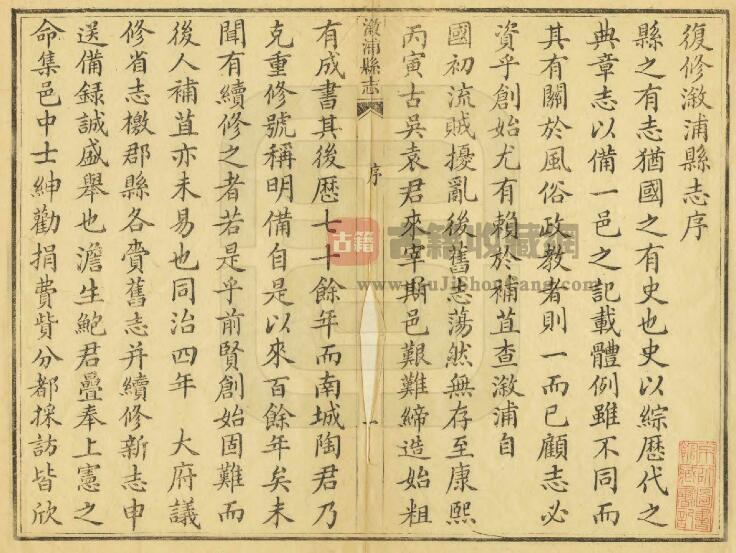 復修漵浦縣志序
縣之有志猶國之有史也史以綜歷代之
典章志以備一邑之記載體例雖不同而
其有關於風俗政教者則一而已顧志必
資乎創始尤有賴於補苴查漵浦自
國初流賊擾亂後舊志蕩然無存至康熙
丙寅古吳袁君來宰斯邑艱難締造始粗
漵浦縣志
序
一
有成書其後歷七十餘年而南城陶君乃
克重修號稱明備自是以來百餘年矣未
聞有續修之者若是乎前賢創始固難而
後人補苴亦未易也同治四年 大府議
修省志檄郡縣各賫舊志并續修新志申
送備録誠盛舉也澹生鮑君疊奉上憲之
命集邑中士紳勸捐費貲分都採訪皆欣
古籍 古籍收藏網
www.GuJiShouCang.com